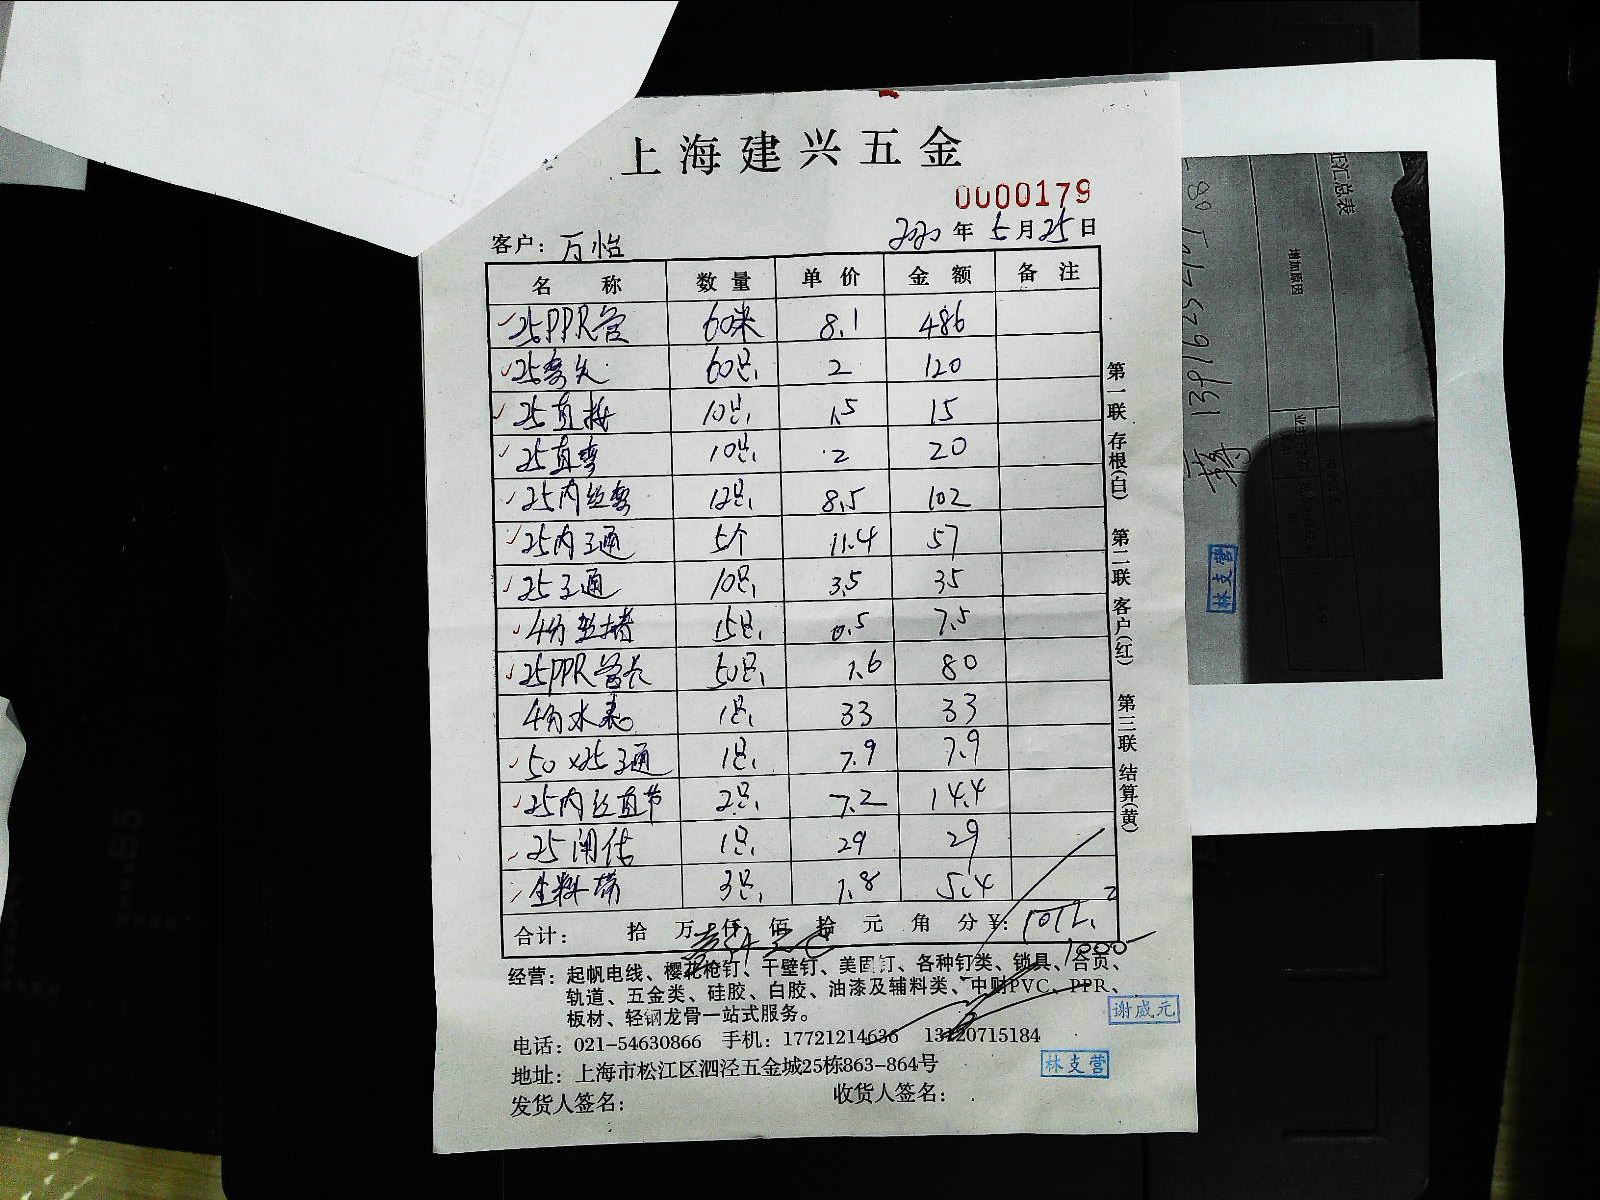 上海建兴五金
0000179
客户：万怡 2020年5月25日
名 称 数量 单价 金额 备注
25PPR管 60米 8.1 486
25弯头 60只 2 120
25直接 10只 1.5 15
25直弯 10只 2 20
25内丝弯 12只 8.5 102
25内三通 5个 11.4 57
25三通 10只 3.5 35
4分丝堵 15只 0.5 7.5
25PPR管卡 50只 1.6 80
4分水表 1只 33 33
50×25三通 1只 7.9 7.9
25内丝直节 2只 7.2 14.4
25闸 1只 29 29
生料带 3只 1.8 5.4
合计： 拾 万 仟 佰 拾 元 角 分 ¥: 1012.2
1000
经营：起帆电线、樱花枪钉、干壁钉、美固钉、各种钉类、锁具、合页、
轨道、五金类、硅胶、白胶、油漆及辅料类、中财PVC、PPR、
板材、轻钢龙骨一站式服务。
电话：021-54630866 手机：17721214636 13120715184
地址：上海市松江区泗泾五金城25栋863-864号
发货人签名： 收货人签名：
谢成元
林支营
第一联 存根(白) 第二联 客户(红) 第三联 结算(黄)
汇总表
增加原因
林支营